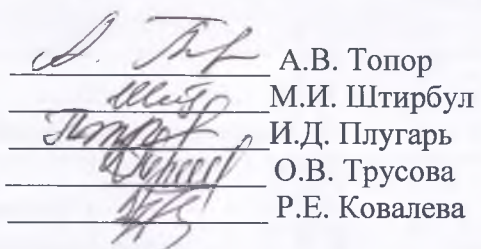 А.В. Топор
М.И. Штирбул
И.Д. Плугарь
О.В. Трусова
Р.Е. Ковалева